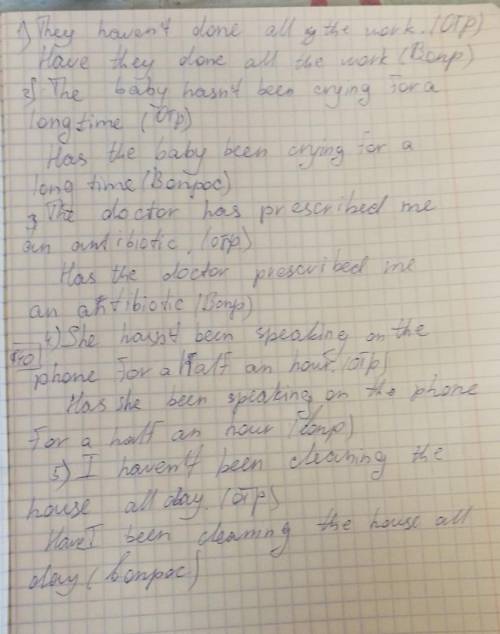 1) They haven't done all of the work. (ОТР)
Have they done all the work (Вопр)
2) The baby hasn't been crying for a
long time (ОТр)
Has the baby been crying for a
long time (Вопрос)
3 The doctor has prescribed me
an antibiotic. (отр)
Has the doctor prescribed me
an antibiotic (Вопр)
4) She hasn't been speaking on the
phone for a half an hour. (отр)
Has she been speaking on the phone
for a half an hour (Вопр)
5) I haven't been cleaning the
house all day. (отр)
Have I been cleaning the house all
day (вопрос)